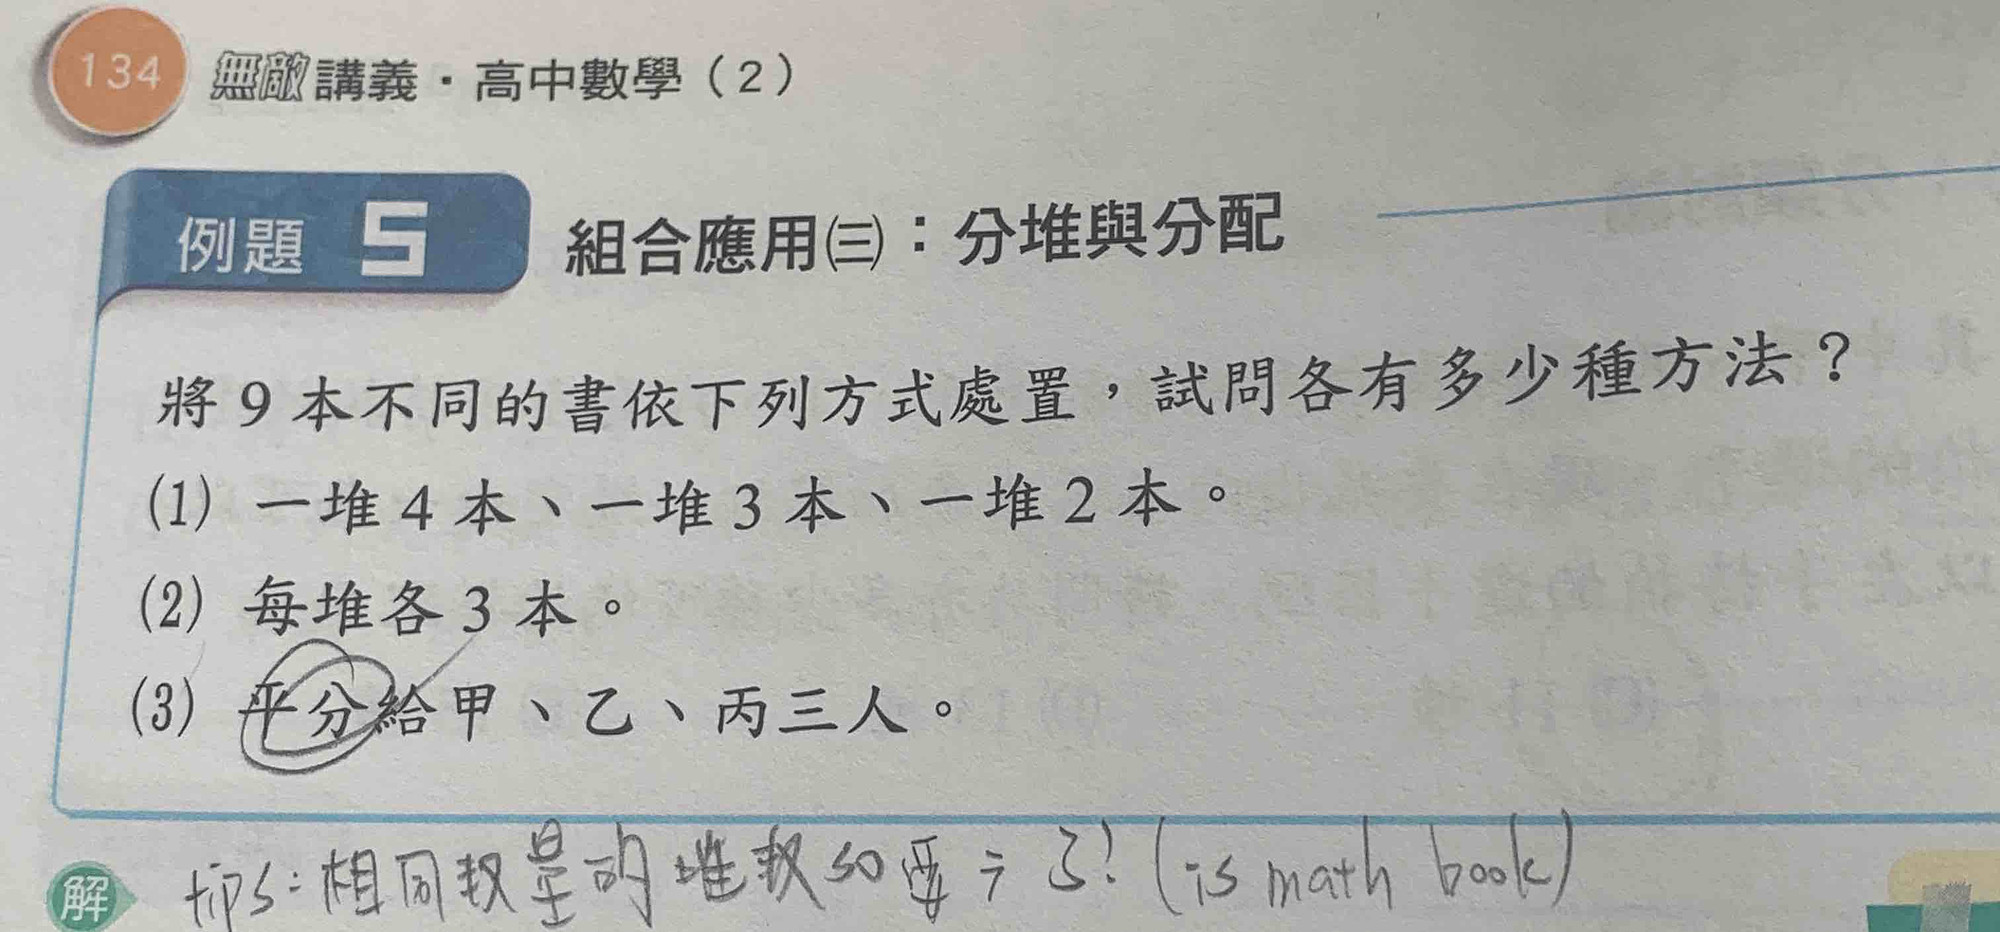 134 無敵講義・高中數學（2）
例題 5 組合應用㈢：分堆與分配
將 9 本不同的書依下列方式處置，試問各有多少種方法？
(1) 一堆 4 本、一堆 3 本、一堆 2 本。
(2) 每堆各 3 本。
(3) 平分給甲、乙、丙三人。
解 tips: 相同数量的堆数 so 要 ÷ 3! (is math book)